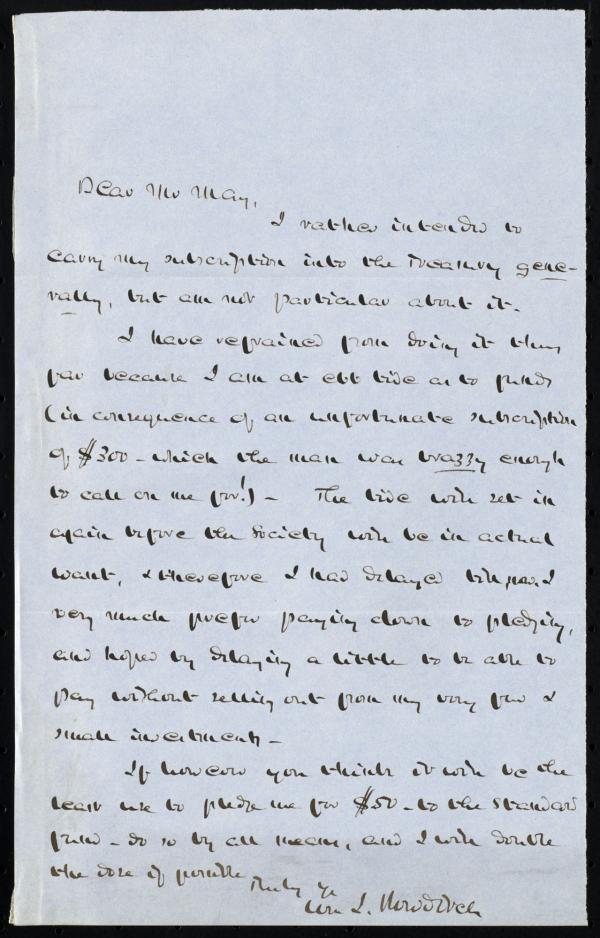 Dear Mr May,
I rather intended to
carry my subscription into the Treasury gene-
rally, but am not particular about it.
I have refrained from doing it thus
far because I am at ebb tide as to funds
(in consequence of an unfortunate subscription
of $300 - which the man was brazzy enough
to call on me for!) - The tide will set in
again before the Society will be in actual
want, & therefore I had delayed till now. I
very much prefer paying down to pledging,
and hoped by delaying a little to be able to
pay without selling out from my very few &
small investments -
If however you think it will be the
least use to pledge me for $50 - to the Standard
fund - do so by all means, and I will double
the dose if possible
Truly yr
Wm I. Bowditch